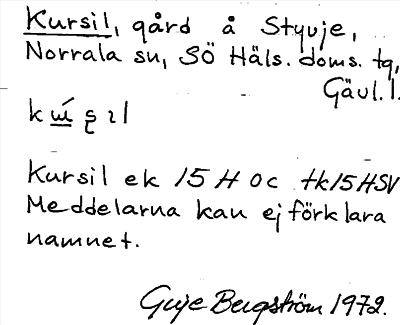 Kursil, gård å Styvje,
Norrala sn, SÖ Häls. doms. tg,
Gävl. l.
Kursil ek 15 H 0c tk15HSV
Meddelarna kan ej förklara
namnet.
Guje Bergström 1972.